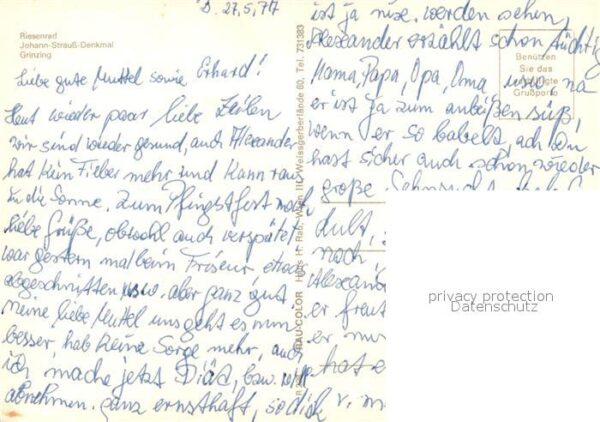 D. 27,5,77
Riesenrad
Johann-Strauß-Denkmal
Grinzing
Liebe gute Muttel sowie Erhard!
Heut wieder paar liebe Zeilen
wir sind wieder gesund, auch Alexander
hat kein Fieber mehr und kann raus
in die Sonne. Zum Pfingstfest noch
liebe Grüße, obwohl auch verspätet
war gestern mal beim Friseur etwas
abgeschnitten usw. aber ganz gut.
meine liebe Muttel uns geht es nun
besser, hab keine Sorge mehr, auch
ich mache jetzt Diät, bzw. will
abnehmen. ganz ernsthaft, so dick
RAU-COLOR Hans H. Rau, Wien III, Weissgerberlände 60, Tel. 731383
ist ja nix. werden sehen,
Alexander erzählt schon tüchtig
Mama, Papa, Opa, Oma usw. na
er ist ja zum anbeißen süß,
wenn er so babelt, ach
hast sicher auch schon wieder
große Sehnsucht
noch
Alexander
er freut
er nur
hat
Benützen
Sie das
Grußporto
privacy protection
Datenschutz